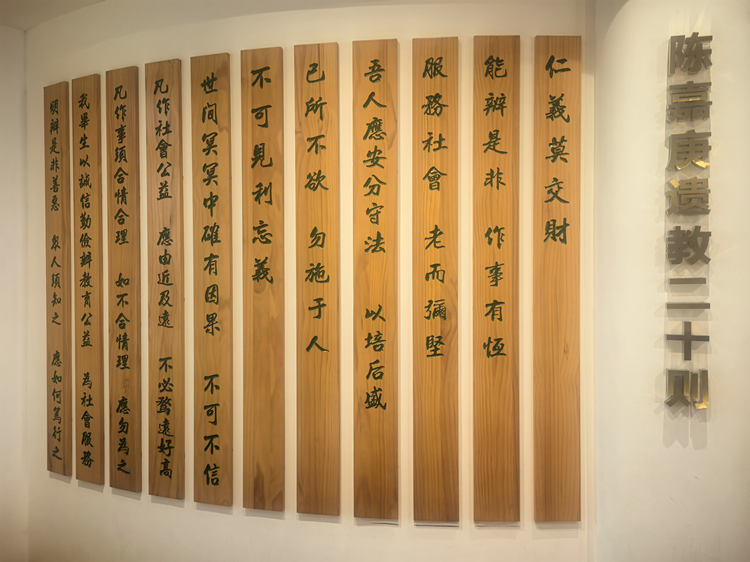 陈嘉庚遗教二十则
仁義莫交財
能辨是非 作事有恆
服務社會 老而彌堅
吾人應安分守法 以培后盛
己所不欲 勿施于人
不可見利忘義
世间冥冥中確有因果 不可不信
凡作社會公益 應由近及遠 不必騖遠好高
凡作事須合情合理 如不合情理 應勿為之
我畢生以誠信勤儉辦教育公益 為社會服務
明辨是非善惡 衆人須知之 應如何篤行之